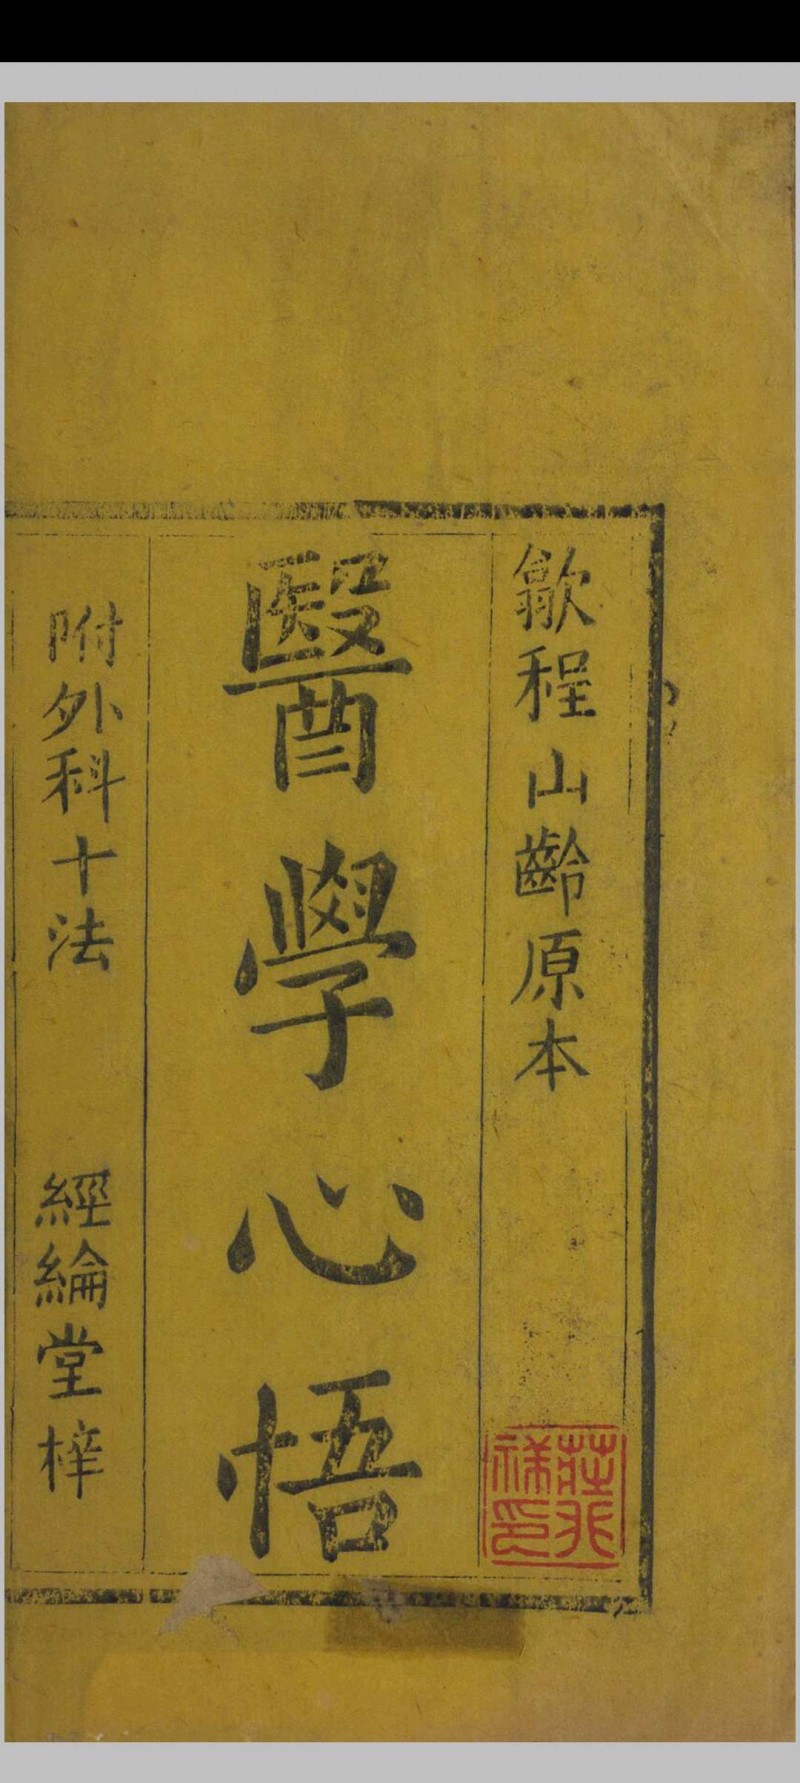 歙程山齡原本
醫學心悟
附外科十法
經綸堂梓